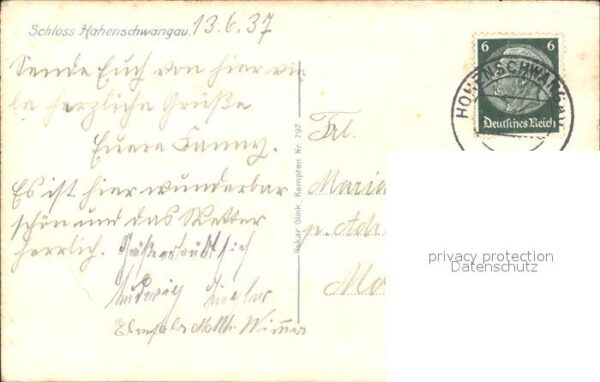 Schloss Hohenschwangau. 13.6.37
Sende Euch von hier vie
le herzliche Grüße
Euere Fanny.
Es ist hier wunderbar
schön und das Wetter
herrlich. Grüße erlaubt sich
Ludwig
Ebenfalls
Oskar Glink, Kempten Nr. 797
6 6
Deutsches Reich
HOHENSCHWANGAU
Frl.
Maria
p. Adr.
Mo
privacy protection
Datenschutz